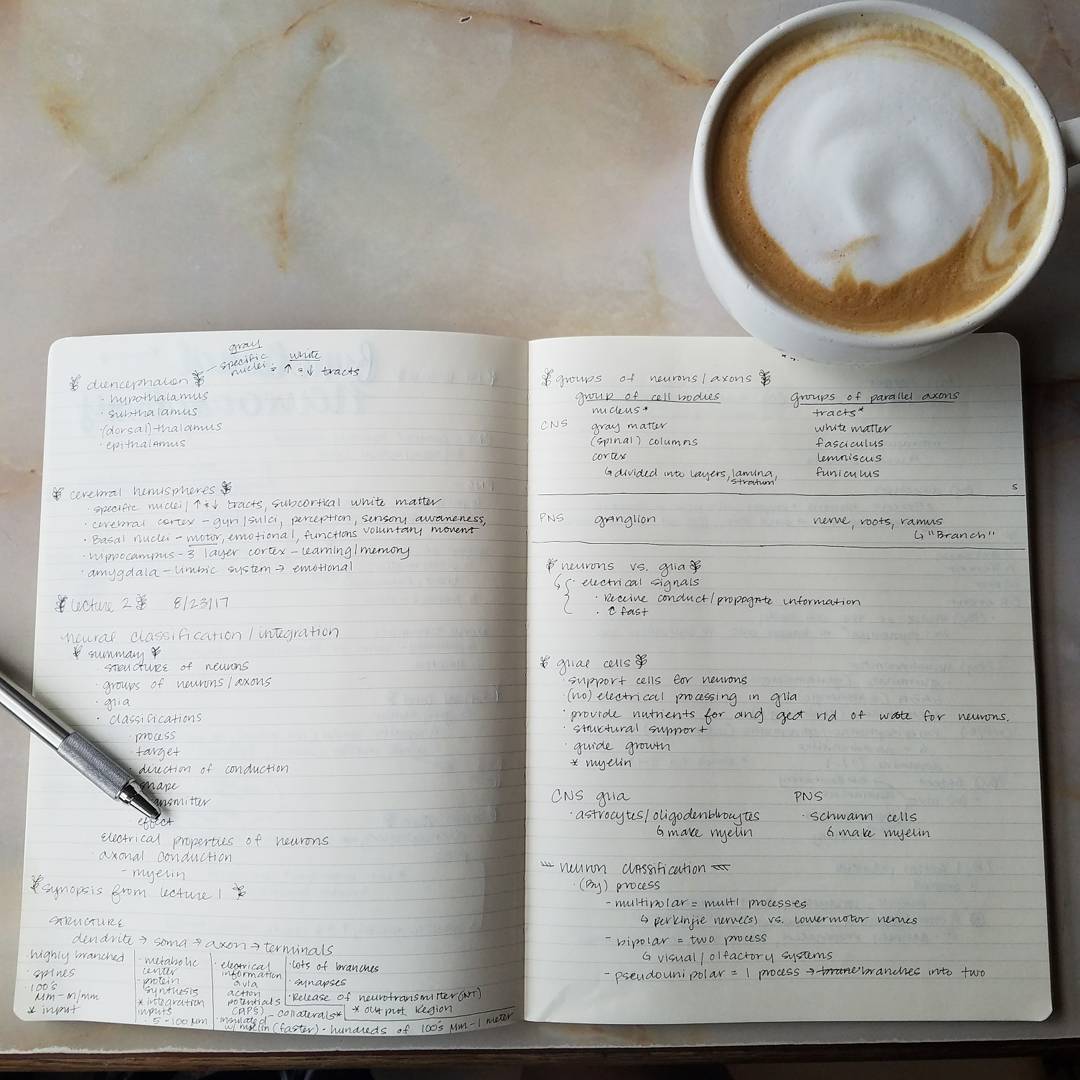 gray
specific nuclei : white ↑ & ↓ tracts
diencephalon
· hypothalamus
· subthalamus
· (dorsal) thalamus
· epithalamus
cerebral hemispheres
· specific nuclei, ↑ & ↓ tracts, subcortical white matter
· cerebral cortex – gyri/sulci, perception, sensory awareness,
· Basal nuclei – motor, emotional, functions voluntary movent
· hippocampus – 3 layer cortex – learning/memory
· amygdala – limbic system → emotional
Lecture 2 8/23/17
neural classification/integration
summary
structure of neurons
· groups of neurons/axons
· glia
· classifications
· process
· target
direction of conduction
effect
Electrical properties of neurons
axonal conduction
– myelin
synopsis from lecture 1
STRUCTURE
dendrite → soma → axon → terminals
· highly branched
· spines
· 100's
μm – m/mm
* input
· metabolic center
· protein synthesis
* integration inputs
· 5-100 μm
· electrical information via action potentials (APS)
· insulated w/ myelin (faster) · hundreds of 100's μm – 1 meter
– collaterals*
· lots of branches
· synapses
· Release of neurotransmitter (NT)
* output region
groups of neurons/axons
group of cell bodies Groups of parallel axons
CNS
nucleus* tracts*
gray matter white matter
(spinal) columns fasciculus
cortex lemniscus
↳ divided into layers, lamina, stratum funiculus
s
PNS granglion nerve, roots, ramus
↳ "Branch"
neurons vs. glia
↳ · electrical signals
· Receive conduct/propagate information
· fast
gliae cells
· support cells for neurons
· (no) electrical processing in glia
· provide nutrients for and get rid of waste for neurons.
· structural support
· guide growth
* myelin
CNS glia PNS
· astrocytes/oligodenblrocytes · schwann cells
↳ make myelin ↳ make myelin
neuron classification
· (By) process
– multipolar = multi processes
↳ perkinjie nerve(s) vs. lowermotor nerves
– bipolar = two process
↳ visual/olfactory systems
– pseudounipolar = 1 process → branches into two